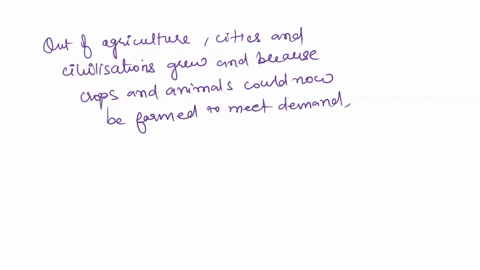 Out of agriculture, cities and
civilisations grew and because
crops and animals could now
be farmed to meet demand,